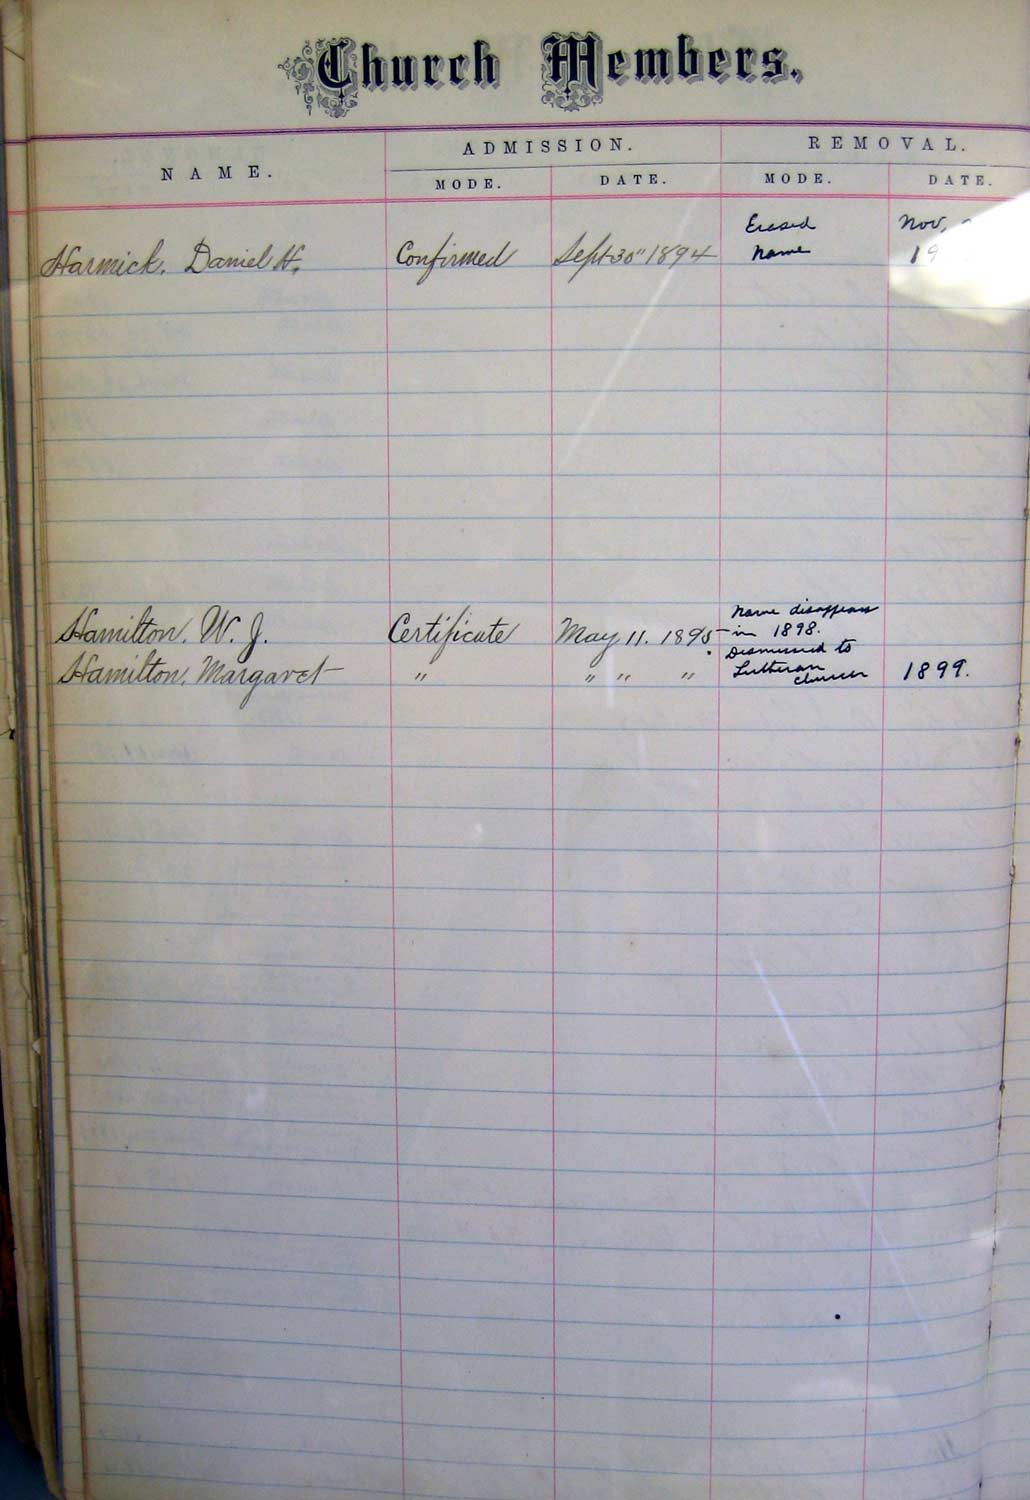 Church Members.
NAME. ADMISSION. REMOVAL.
MODE. DATE. MODE. DATE.
Erased Nov,
Harmick, Daniel H. Confirmed Sept 30" 1894 Name 19
Hamilton, W. J. Certificate May 11. 1895 Name disappears
in 1898.
Hamilton, Margaret " " " " Dismissed to
Lutheran 1899.
church